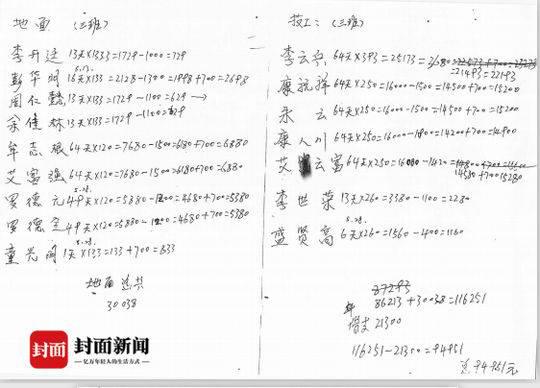 地面 (三班)
李开廷 13天×133=1729-1000=729
彭华明 16天×133=2128-1300=1998+700=2698
周仁 13天×133=1729-1100=629→
余佳林 13天×133=1729-1100=629
牟志粮 64天×120=7680-1500=6180+700=6880
艾富强 64天×120=7680-1500=6180+700=6880
罗德元 49天×120=5880-1200=4680+700=5380
罗德全 49天×120=5880-1200=4680+700=5380
童光明 1天×133=133+700=833
地面总共
30038
技工: (三班)
李云 64天×393=25173
=21493=22193
康祝祥 64天×250=16000-1500=14500+700=15200
永云 64天×250=16000-1500=14500+700=15200
康人川 64天×250=16000-1800=14200+700=14900
艾云富 64天×250=16000-1420=
14580+700=15280
李世荣 13天×260=3380-1100=2280
盛贤高 6天×260=1560-400=1160
87293
86213+30038=116251
借支 21300
116251-21300=94951
总94951元
封面 封面新闻
亿万年轻人的生活方式